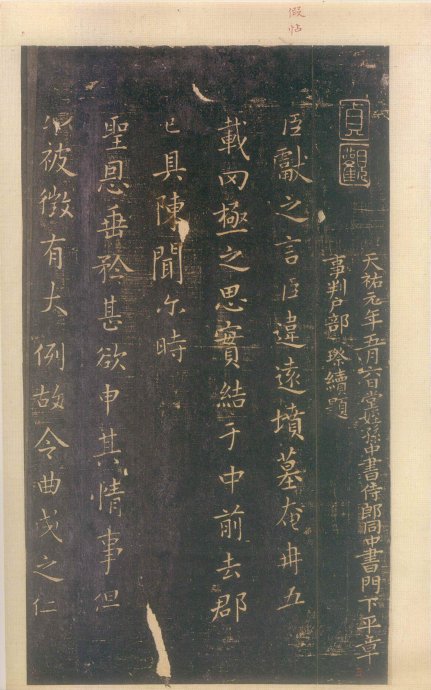 假帖
貞觀
天祐元年五月六日堂姪孫中書侍郎同中書門下平章
事判户部 璨續題
臣獻之言臣違遠墳墓奄冉五
載罔極之思實結于中前去郡
已具陳聞尔時
聖恩垂矜甚欲申其情事但
被徵有大例故令曲成之仁